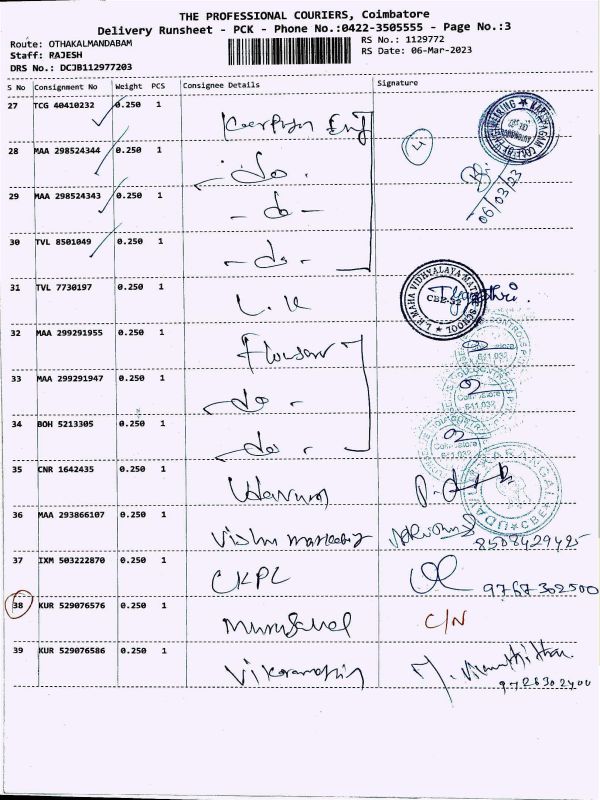 THE PROFESSIONAL COURIERS, Coimbatore
Delivery Runsheet - PCK - Phone No.:0422-3505555 - Page No.:3
Route: OTHAKALMANDABAM RS No.: 1129772
Staff: RAJESH RS Date: 06-Mar-2023
DRS No.: DCJB112977203
S No Consignment No Weight PCS Consignee Details Signature
27 TCG 40410232 0.250 1
28 MAA 298524344 0.250 1 - do -
29 MAA 298524343 0.250 1 - do -
06/03/23
30 TVL 8501049 0.250 1 - do -
31 TVL 7730197 0.250 1
32 MAA 299291955 0.250 1
33 MAA 299291947 0.250 1 - do -
34 BOH 5213305 0.250 1 - do -
35 CNR 1642435 0.250 1
36 MAA 293866107 0.250 1 Vishnu
8508429425
37 IXM 503222870 0.250 1 CKPL
9767302500
38 KUR 529076576 0.250 1 C/N
39 KUR 529076586 0.250 1